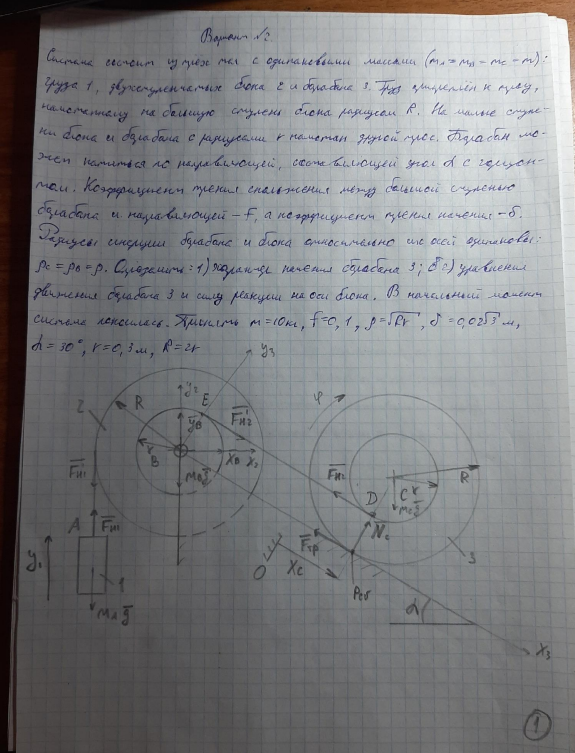 Вариант №2.
Система состоит из трёх тел с одинаковыми массами (mA = mB = mC = m):
груза 1, двухступенчатых блока 2 и барабана 3. Груз прикреплён к тросу,
намотанному на большую ступень блока радиусом R. На малые ступе-
ни блока и барабана с радиусами r намотан другой трос. Барабан мо-
жет катиться по направляющей, составляющей угол α с горизон-
том. Коэффициент трения скольжения между большой ступенью
барабана и направляющей – f, а коэффициент трения качения – δ.
Радиусы инерции барабана и блока относительно их осей одинаковы:
ρC = ρB = ρ. Определить: 1) характер качения барабана 3; 2) уравнения
движения барабана 3 и силу реакции на оси блока. В начальный момент
система покоилась. Принять m = 10 кг, f = 0,1, ρ = √Rr, δ = 0,02√3 м,
α = 30°, r = 0,3 м, R = 2r
y3
y2
φ
2
R
E
F̄н2'
ȳB
r
B
XB
x2
F̄н1'
mBḡ
F̄н2
C
r
R
mCḡ
D
N̄C
A
F̄н1
F̄тр
y1
O
XC
3
1
PCδ
mAḡ
α
x3
1